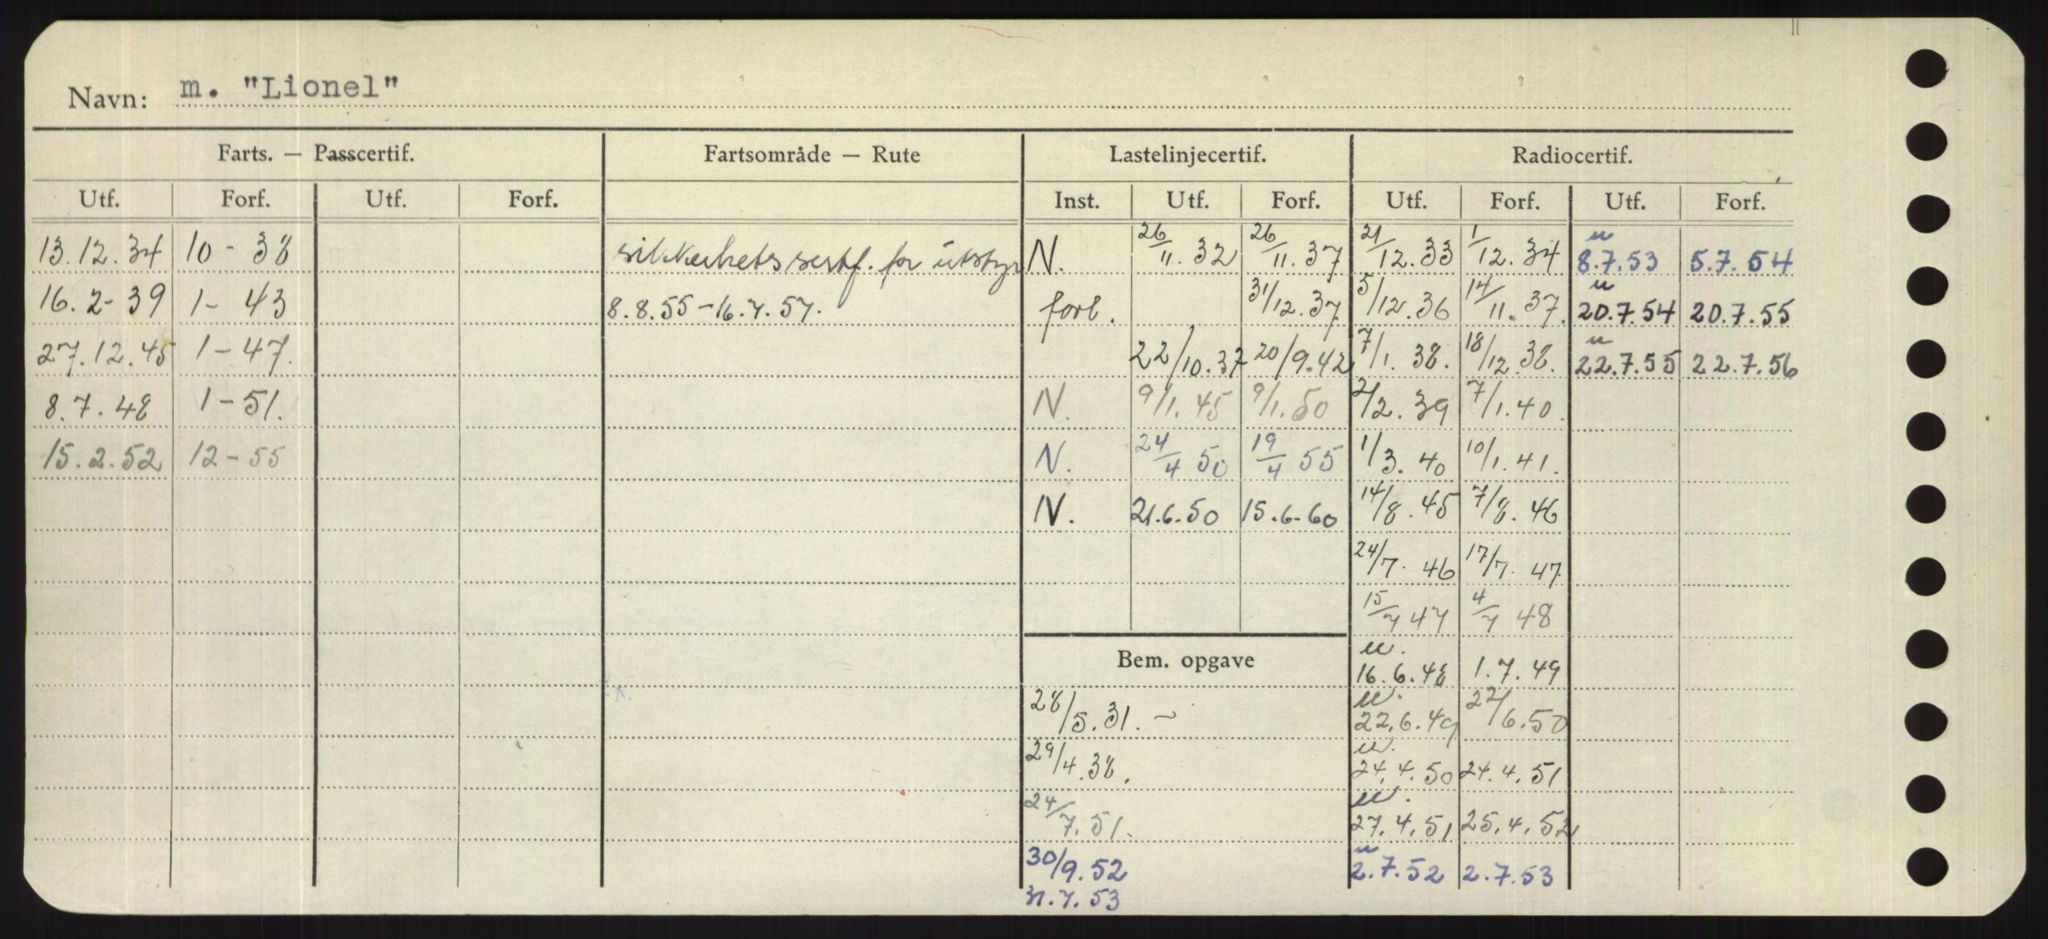 Navn: m. "Lionel"
Farts. — Passcertif. Fartsområde — Rute Lastelinjecertif. Radiocertif.
Utf. Forf. Utf. Forf. Inst. Utf. Forf. Utf. Forf. Utf. Forf.
13.12.34 10 - 38 sikkerhetssertf. for utstyr N. 26/11. 32 26/11. 37 21/12. 33 1/12. 34 u 8.7.53 5.7.54
16. 2 - 39 1 - 43 8.8.55 - 16.7.57. forl. 31/12. 37 5/12. 36 14/11. 37. u 20.7.54 20.7.55
27.12.45 1 - 47. 22/10. 37 20/9. 42 7/1. 38. 18/12. 38. u 22.7.55 22.7.56
8.7.48 1 - 51. N. 9/1. 45 9/1. 50 2/2. 39 7/1. 40.
15.2.52 12 - 55 N. 24/4 50 19/4 55 1/3. 40 10/1. 41.
N. 21.6.50 15.6-60 14/8. 45 7/8. 46
24/7. 46 17/7. 47
15/7 47 4/7 48
Bem. opgave u. 16.6.48 1.7.49
28/5. 31. – u. 22.6.49 22/6. 50
29/4. 38. u. 24.4.50 24.4.51
24/7. 51. u. 27.4.51 25.4.52
30/9. 52 u 2.7.52 2.7.53
31.7.53